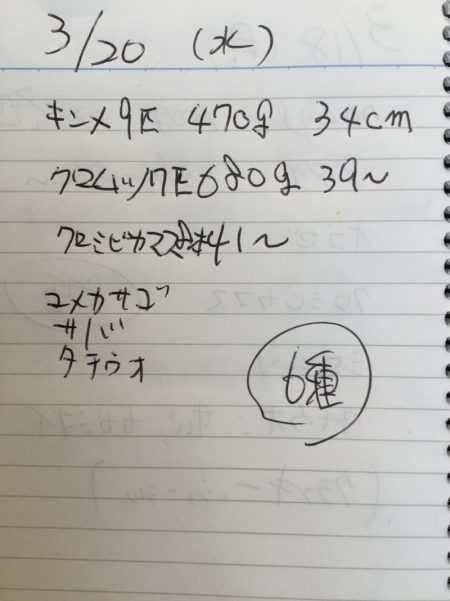 3/20 (水)
キンメ9匹 470g 34cm
クロムツ7匹 680g 39〜
クロシビカマス8本41〜
ユメカサゴ
サバ
タチウオ
6種